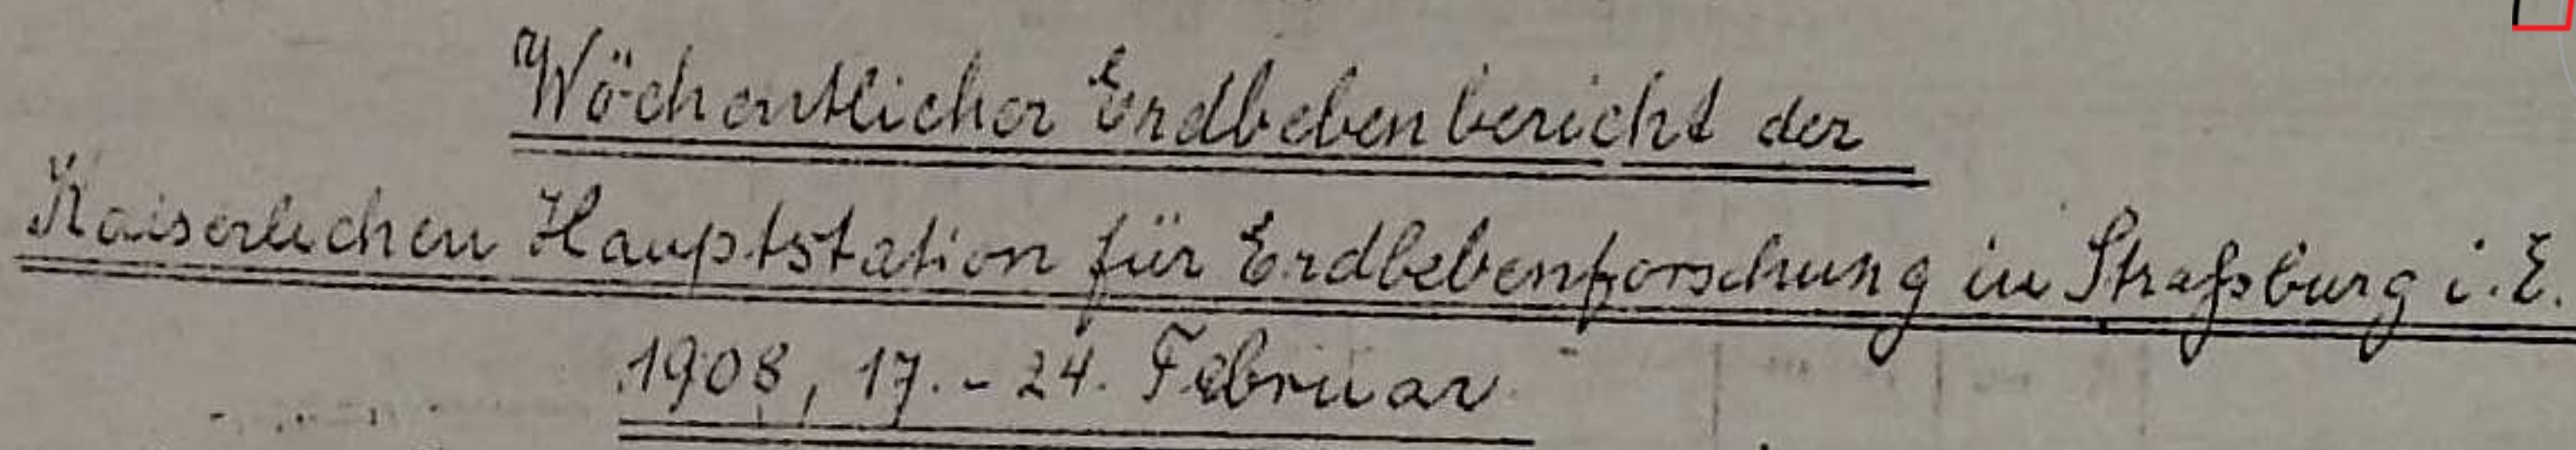 Wöchentlicher Erdbebenbericht der
Kaiserlichen Hauptstation für Erdbebenforschung in Straßburg i. E.
1908, 17. - 24. Februar